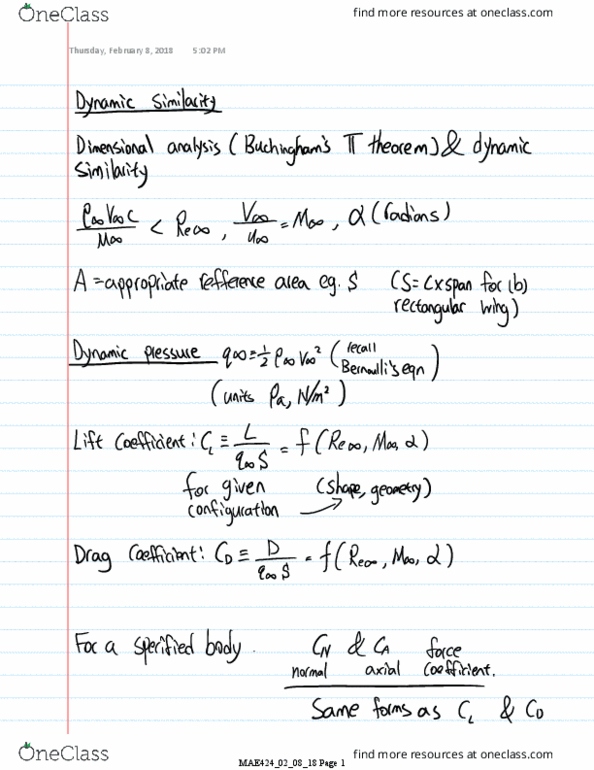 OneClass
find more resources at oneclass.com
Thursday, February 8, 2018 5:02 PM
Dynamic Similarity
Dimensional analysis (Buchingham's π theorem) & dynamic
similarity
ρ∞ V∞ c / M∞ < Re∞ , V∞ / u∞ = M∞ , α (radians)
A = appropriate refference area eg. S (S = C x span for (b)
rectangular wing)
Dynamic pressure q∞ = 1/2 ρ∞ V∞² (recall
Bernoulli's eqn)
(units Pa, N/m²)
Lift Coefficient: C_L ≡ L / q∞ S = f (Re∞, M∞, α)
for given (shape, geometry)
configuration
Drag Coefficient: C_D ≡ D / q∞ S = f (Re∞, M∞, α)
For a specified body. C_N & C_A force
normal axial coefficient.
Same forms as C_L & C_D
OneClass
MAE424_02_08_18 Page 1
find more resources at oneclass.com